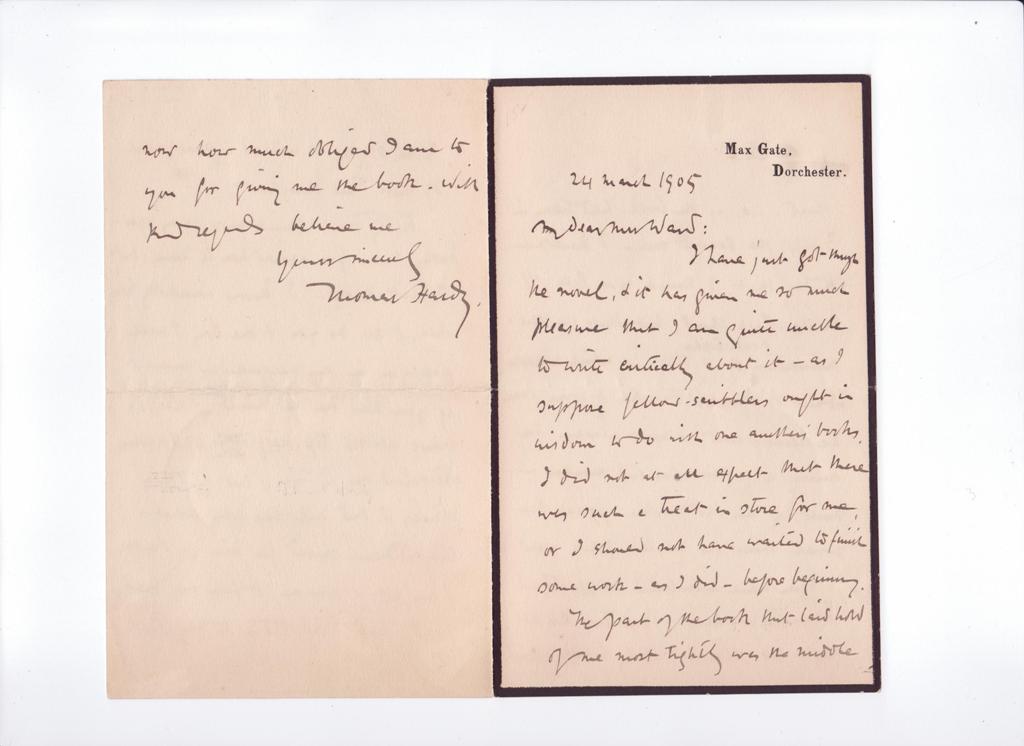 Max Gate,
Dorchester.
24 March 1905
My dear Mrs Ward:
I have just got through
the novel, & it has given me so much
pleasure that I am quite unable
to write critically about it – as I
suppose fellow-scribblers ought in
wisdom to do with one another's books.
I did not at all expect that there
was such a treat in store for me,
or I should not have waited to finish
some work – as I did – before beginning.
The part of the book that laid hold
of me most tightly was the middle
now how much obliged I am to
you for giving me the book. With
kind regards believe me
Yours sincerely
Thomas Hardy.